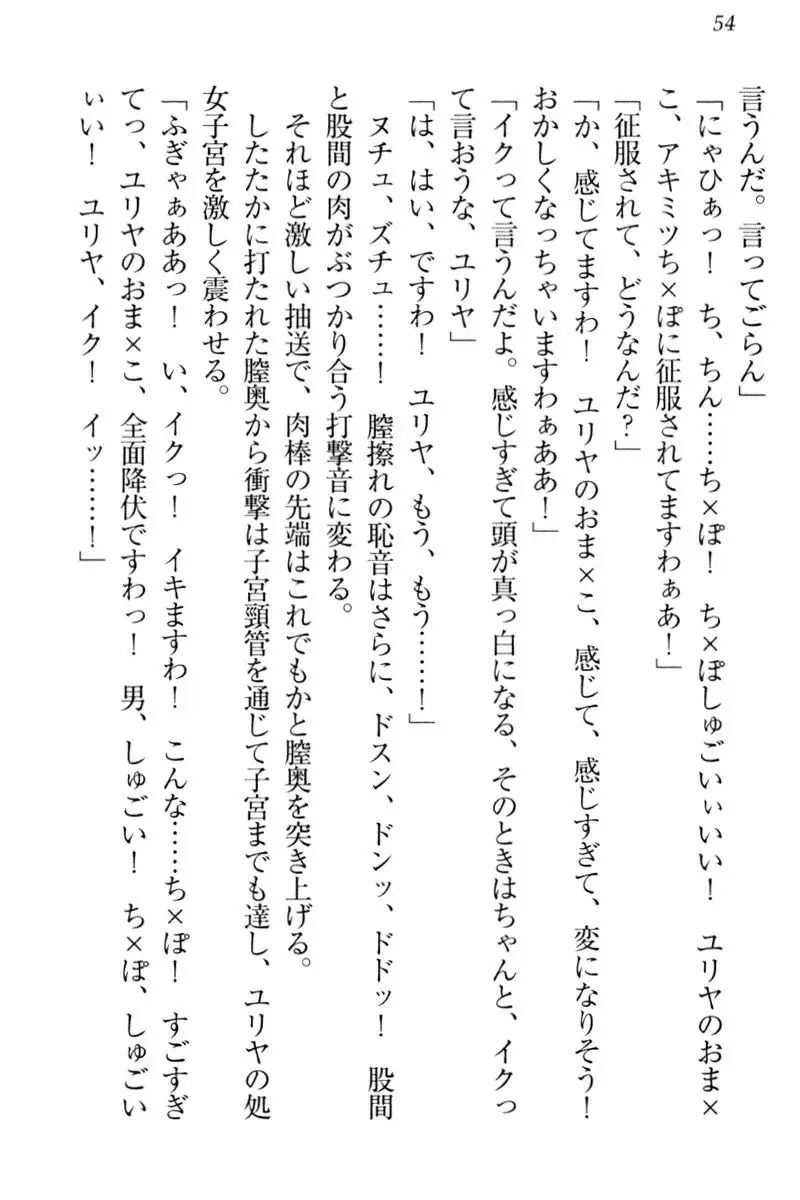 54
言うんだ。言ってごらん」
「にゃひぁっ！　ち、ちん……ち×ぽ！　ち×ぽしゅごいぃいい！　ユリヤのおま×
こ、アキミツち×ぽに征服されてますわぁあ！」
「征服されて、どうなんだ？」
「か、感じてますわ！　ユリヤのおま×こ、感じて、感じすぎて、変になりそう！
おかしくなっちゃいますわぁああ！」
「イクって言うんだよ。感じすぎて頭が真っ白になる、そのときはちゃんと、イクっ
て言おうな、ユリヤ」
「は、はい、ですわ！　ユリヤ、もう、もう……！」
ヌチュ、ズチュ……！　膣擦れの恥音はさらに、ドスン、ドンッ、ドドッ！　股間
と股間の肉がぶつかり合う打撃音に変わる。
それほど激しい抽送で、肉棒の先端はこれでもかと膣奥を突き上げる。
したたかに打たれた膣奥から衝撃は子宮頸管を通じて子宮までも達し、ユリヤの処
女子宮を激しく震わせる。
「ふぎゃぁああっ！　い、イクっ！　イキますわ！　こんな……ち×ぽ！　すごすぎ
てっ、ユリヤのおま×こ、全面降伏ですわっ！　男、しゅごい！　ち×ぽ、しゅごい
ぃい！　ユリヤ、イク！　イッ……！」